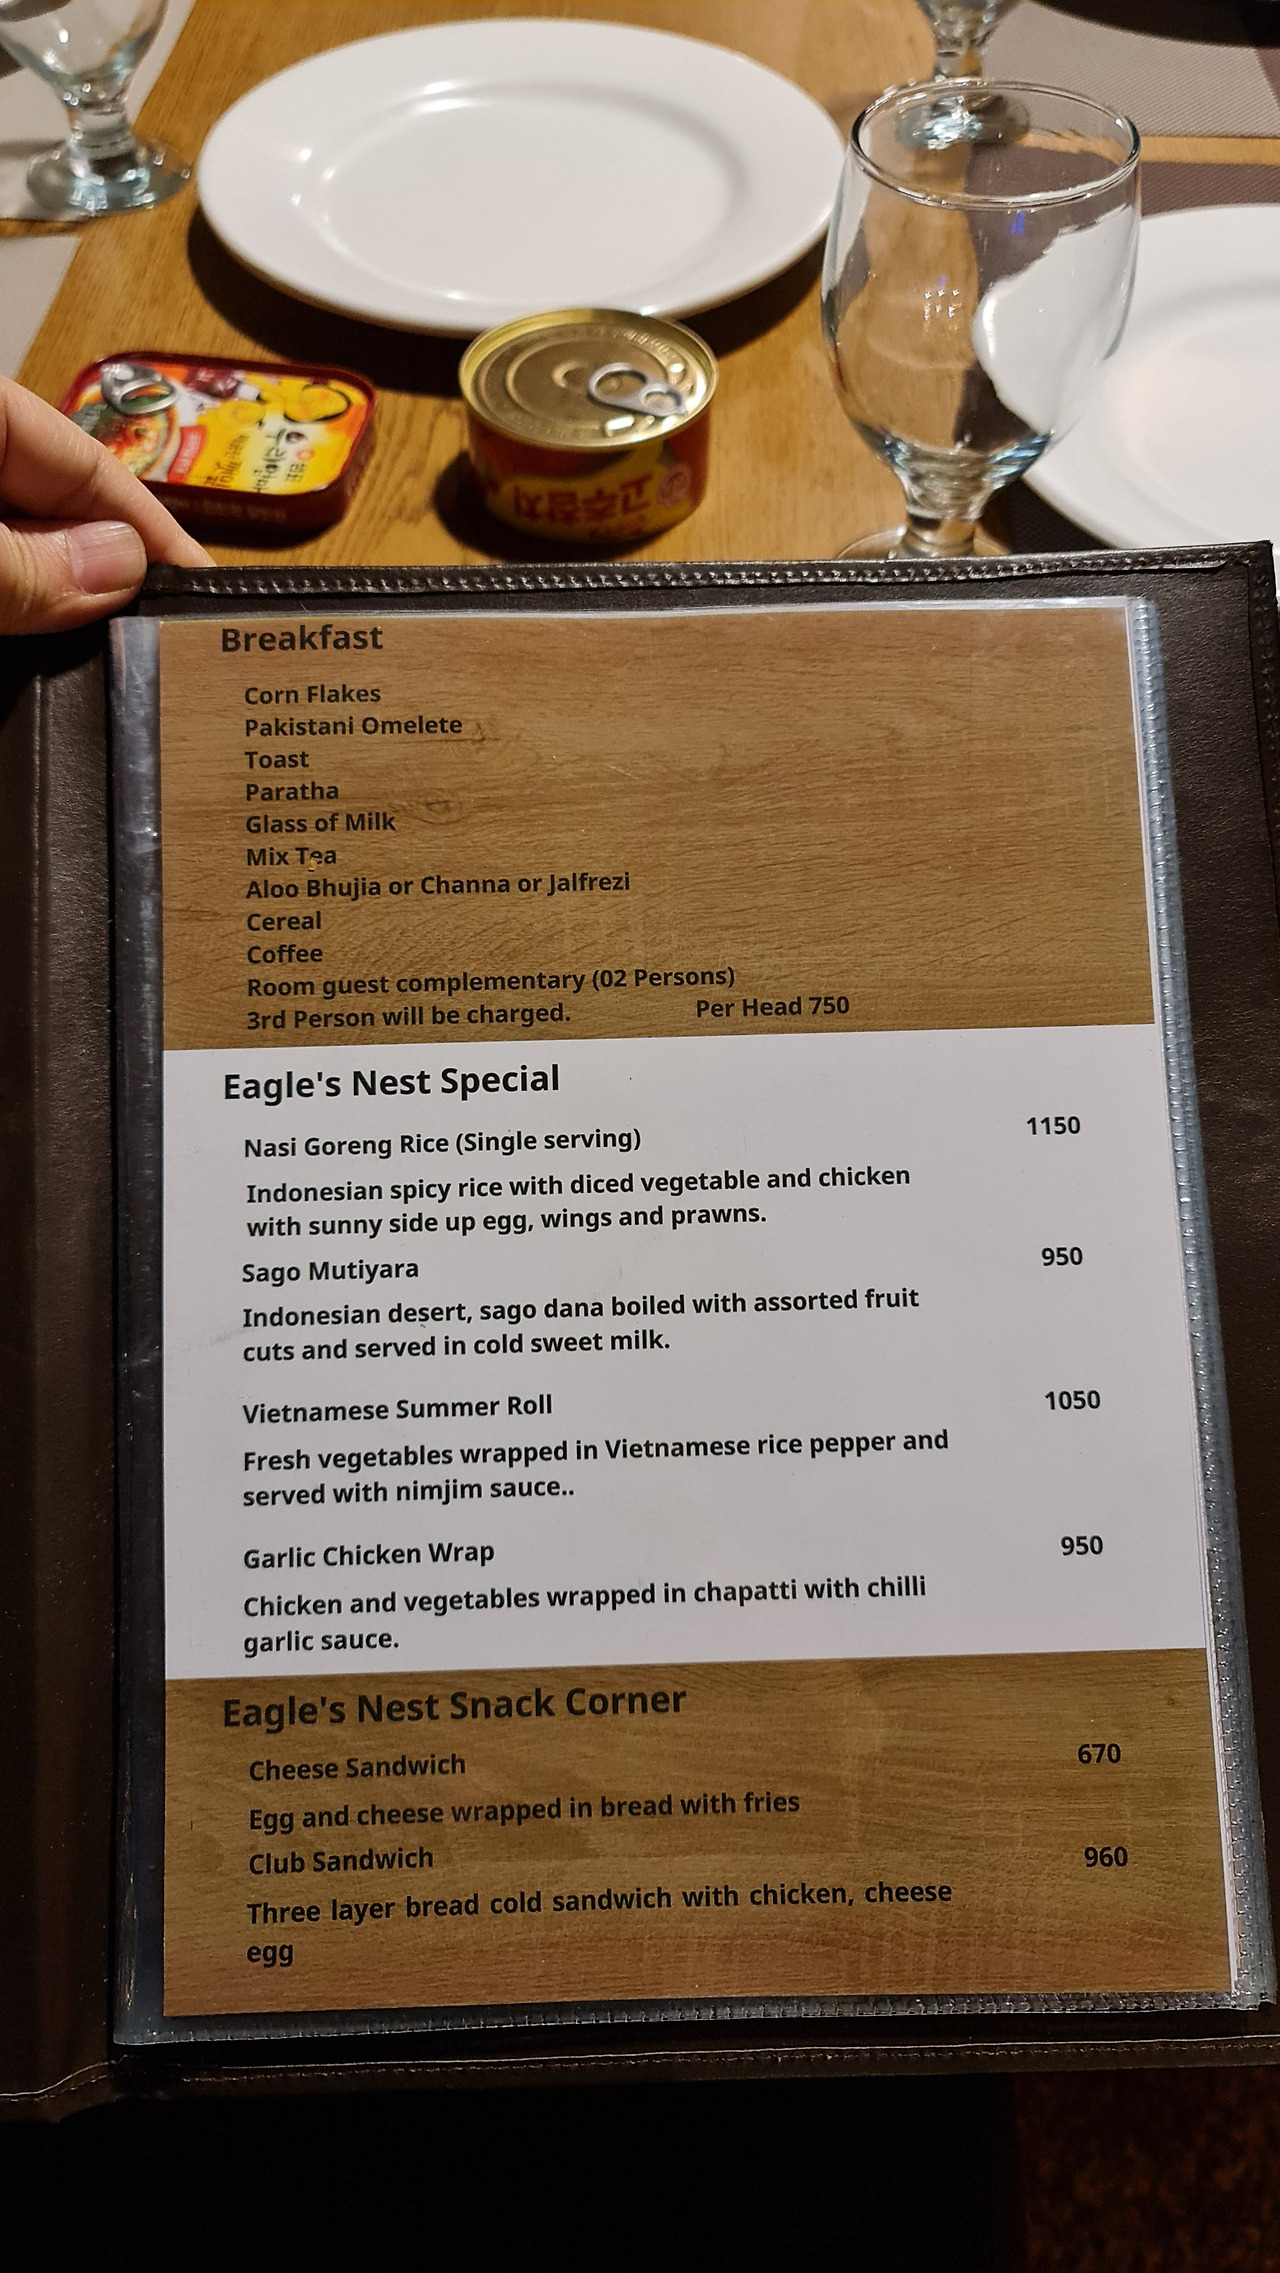 Breakfast
Corn Flakes
Pakistani Omelete
Toast
Paratha
Glass of Milk
Mix Tea
Aloo Bhujia or Channa or Jalfrezi
Cereal
Coffee
Room guest complementary (02 Persons)
3rd Person will be charged. Per Head 750
Eagle's Nest Special
Nasi Goreng Rice (Single serving) 1150
Indonesian spicy rice with diced vegetable and chicken
with sunny side up egg, wings and prawns.
Sago Mutiyara 950
Indonesian desert, sago dana boiled with assorted fruit
cuts and served in cold sweet milk.
Vietnamese Summer Roll 1050
Fresh vegetables wrapped in Vietnamese rice pepper and
served with nimjim sauce..
Garlic Chicken Wrap 950
Chicken and vegetables wrapped in chapatti with chilli
garlic sauce.
Eagle's Nest Snack Corner
Cheese Sandwich 670
Egg and cheese wrapped in bread with fries
Club Sandwich 960
Three layer bread cold sandwich with chicken, cheese
egg